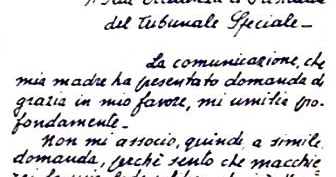 A Sua Eccellenza il Presidente
del Tribunale Speciale –
La comunicazione, che
mia madre ha presentato domanda di
grazia in mio favore, mi umilia pro-
fondamente –
Non mi associo, quindi, a simile
domanda, perchè sento che macchie